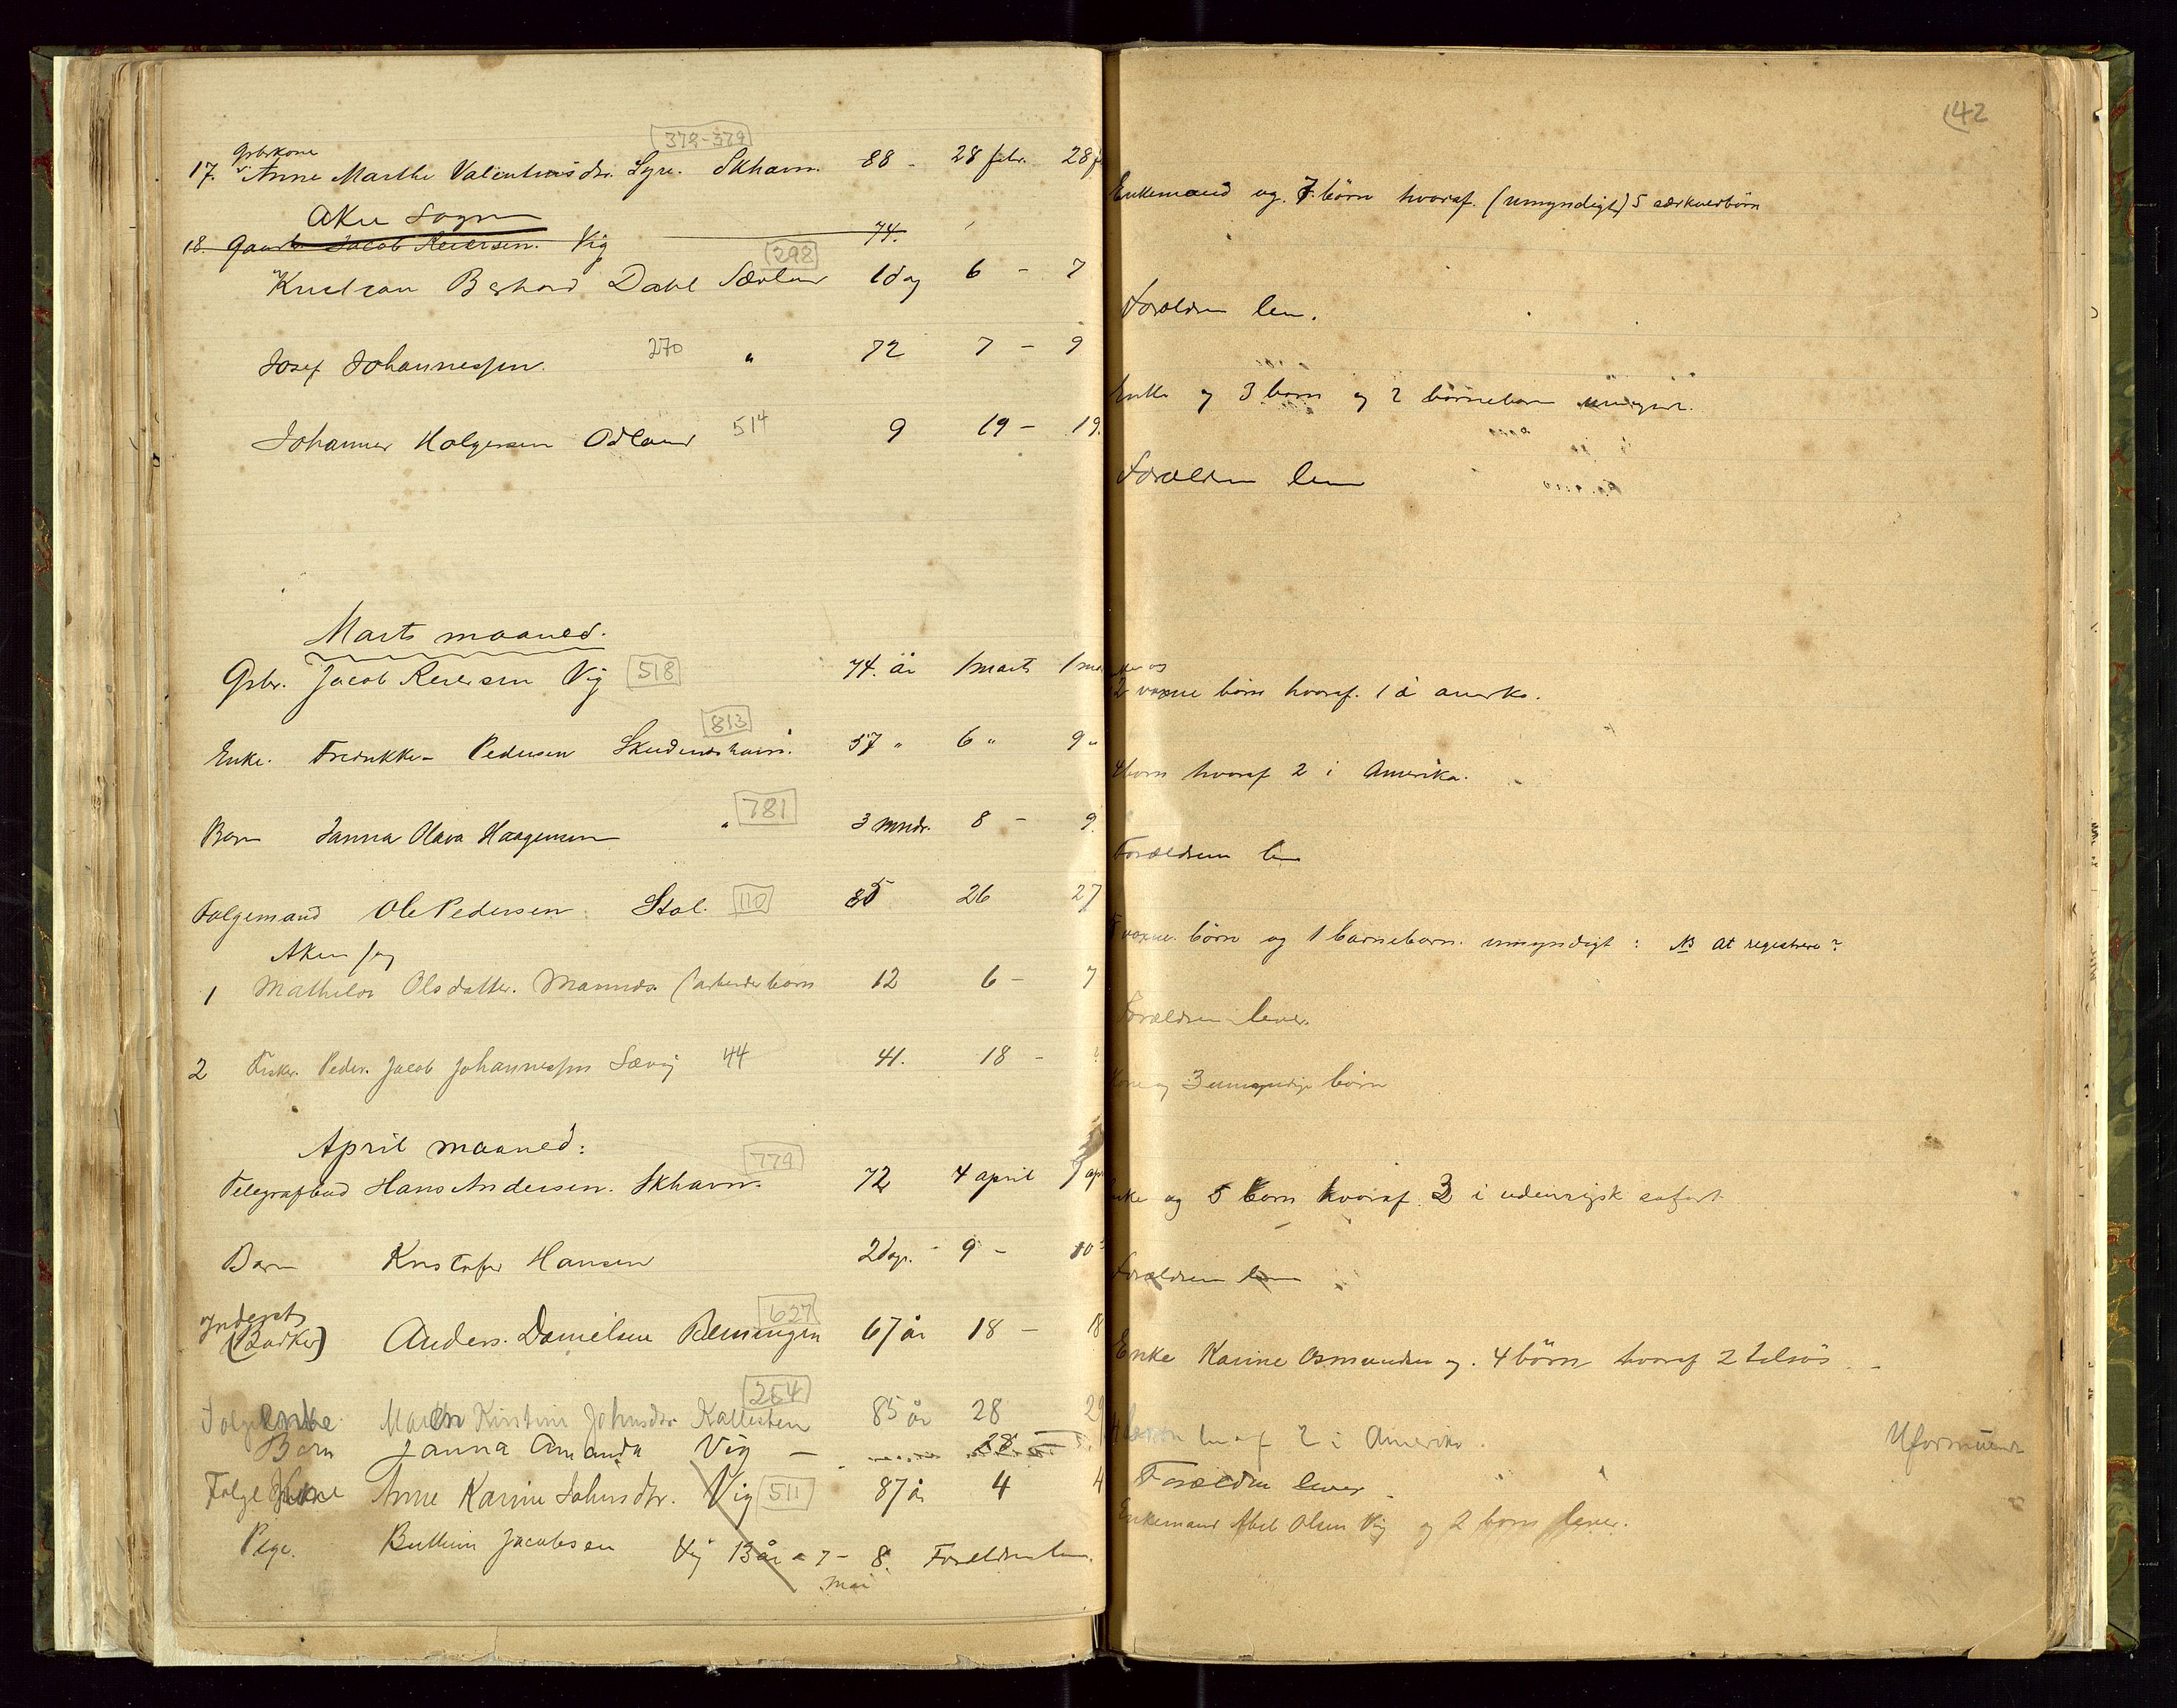 42
372-379
Gbrkone
17. Anne Marthe Valentinsdtr. Syre. Skhavn. 88 - 28 febr. 28 f
Enkemand og 7 börn hvoraf (umyndigt) 5 særkuldbörn
Aker Sogn
18. Gaardb. Jacob Reiersen. Vig 74.
298
Knudsen Dahl Sævland 1 dag 6 - 7
Forældren lev.
Josef Johannessen. 270 " 72 7 - 9
Enke og 3 barn og 2 börnebarn
Johannes Holgersen Ødland 514 9 19 - 19.
Forældren lev
Marts maaned.
Gbr. Jacob Reiersen Vig 518 74. år 1 marts 1 ma
2 voxne börn hvoraf. 1 i amrka.
813
Enke. Fredrikke Pedersen Skudeneshavn. 57 " 6 " 9 "
4 born hvoraf 2 i Amerika.
781
Barn Janna Olava Haagensen " 3 mndr. 8 - 9.
Forældrene lev
Folgemand Ole Pedersen Stol. 110 85 26 27
voxne börn og 1 barnebarn umyndigt : NB at registrere?
Aker sog
1 Mathilde Olsdatter. (arbeiderbarn 12 6 - 7
Forældren lever.
2 Fisker. Peder. Jacob Johannessen Sævig 44 41. 18 -
Kone og 3 umyndige börn
April maaned:
779
Telegrafbud Hans Andersen. Skhavn. 72 4 april 7 apr
Enke og 5 born hvoraf. 3 i udenrigsk safart
Barn Kristofer Hansen 2 dage - 9 - 10
Forældren lev
627
Inderst
(Bødker) Anders. Danielsen Bemsingen 67 år 18 - 18
Enke Karine Osmundsen og. 4 börn hvoraf 2 tilsös
264
Folgeenke Maren Kirstine Johnsdtr. Kallesten 85 år 28 29
4 barn hvaf 2 i Amerika. Uformuende
Barn Janna Amanda Vig - 28
Forældren lever
Folge Kone Anne Karine Johnsdtr. Vig 511 87 år 4 4
Enkemand Abel Olsen Vig og 2 born lever.
Pige. Bertine Jacobsen Vig 13 år - 7 - 8. Forældren lev.
mai